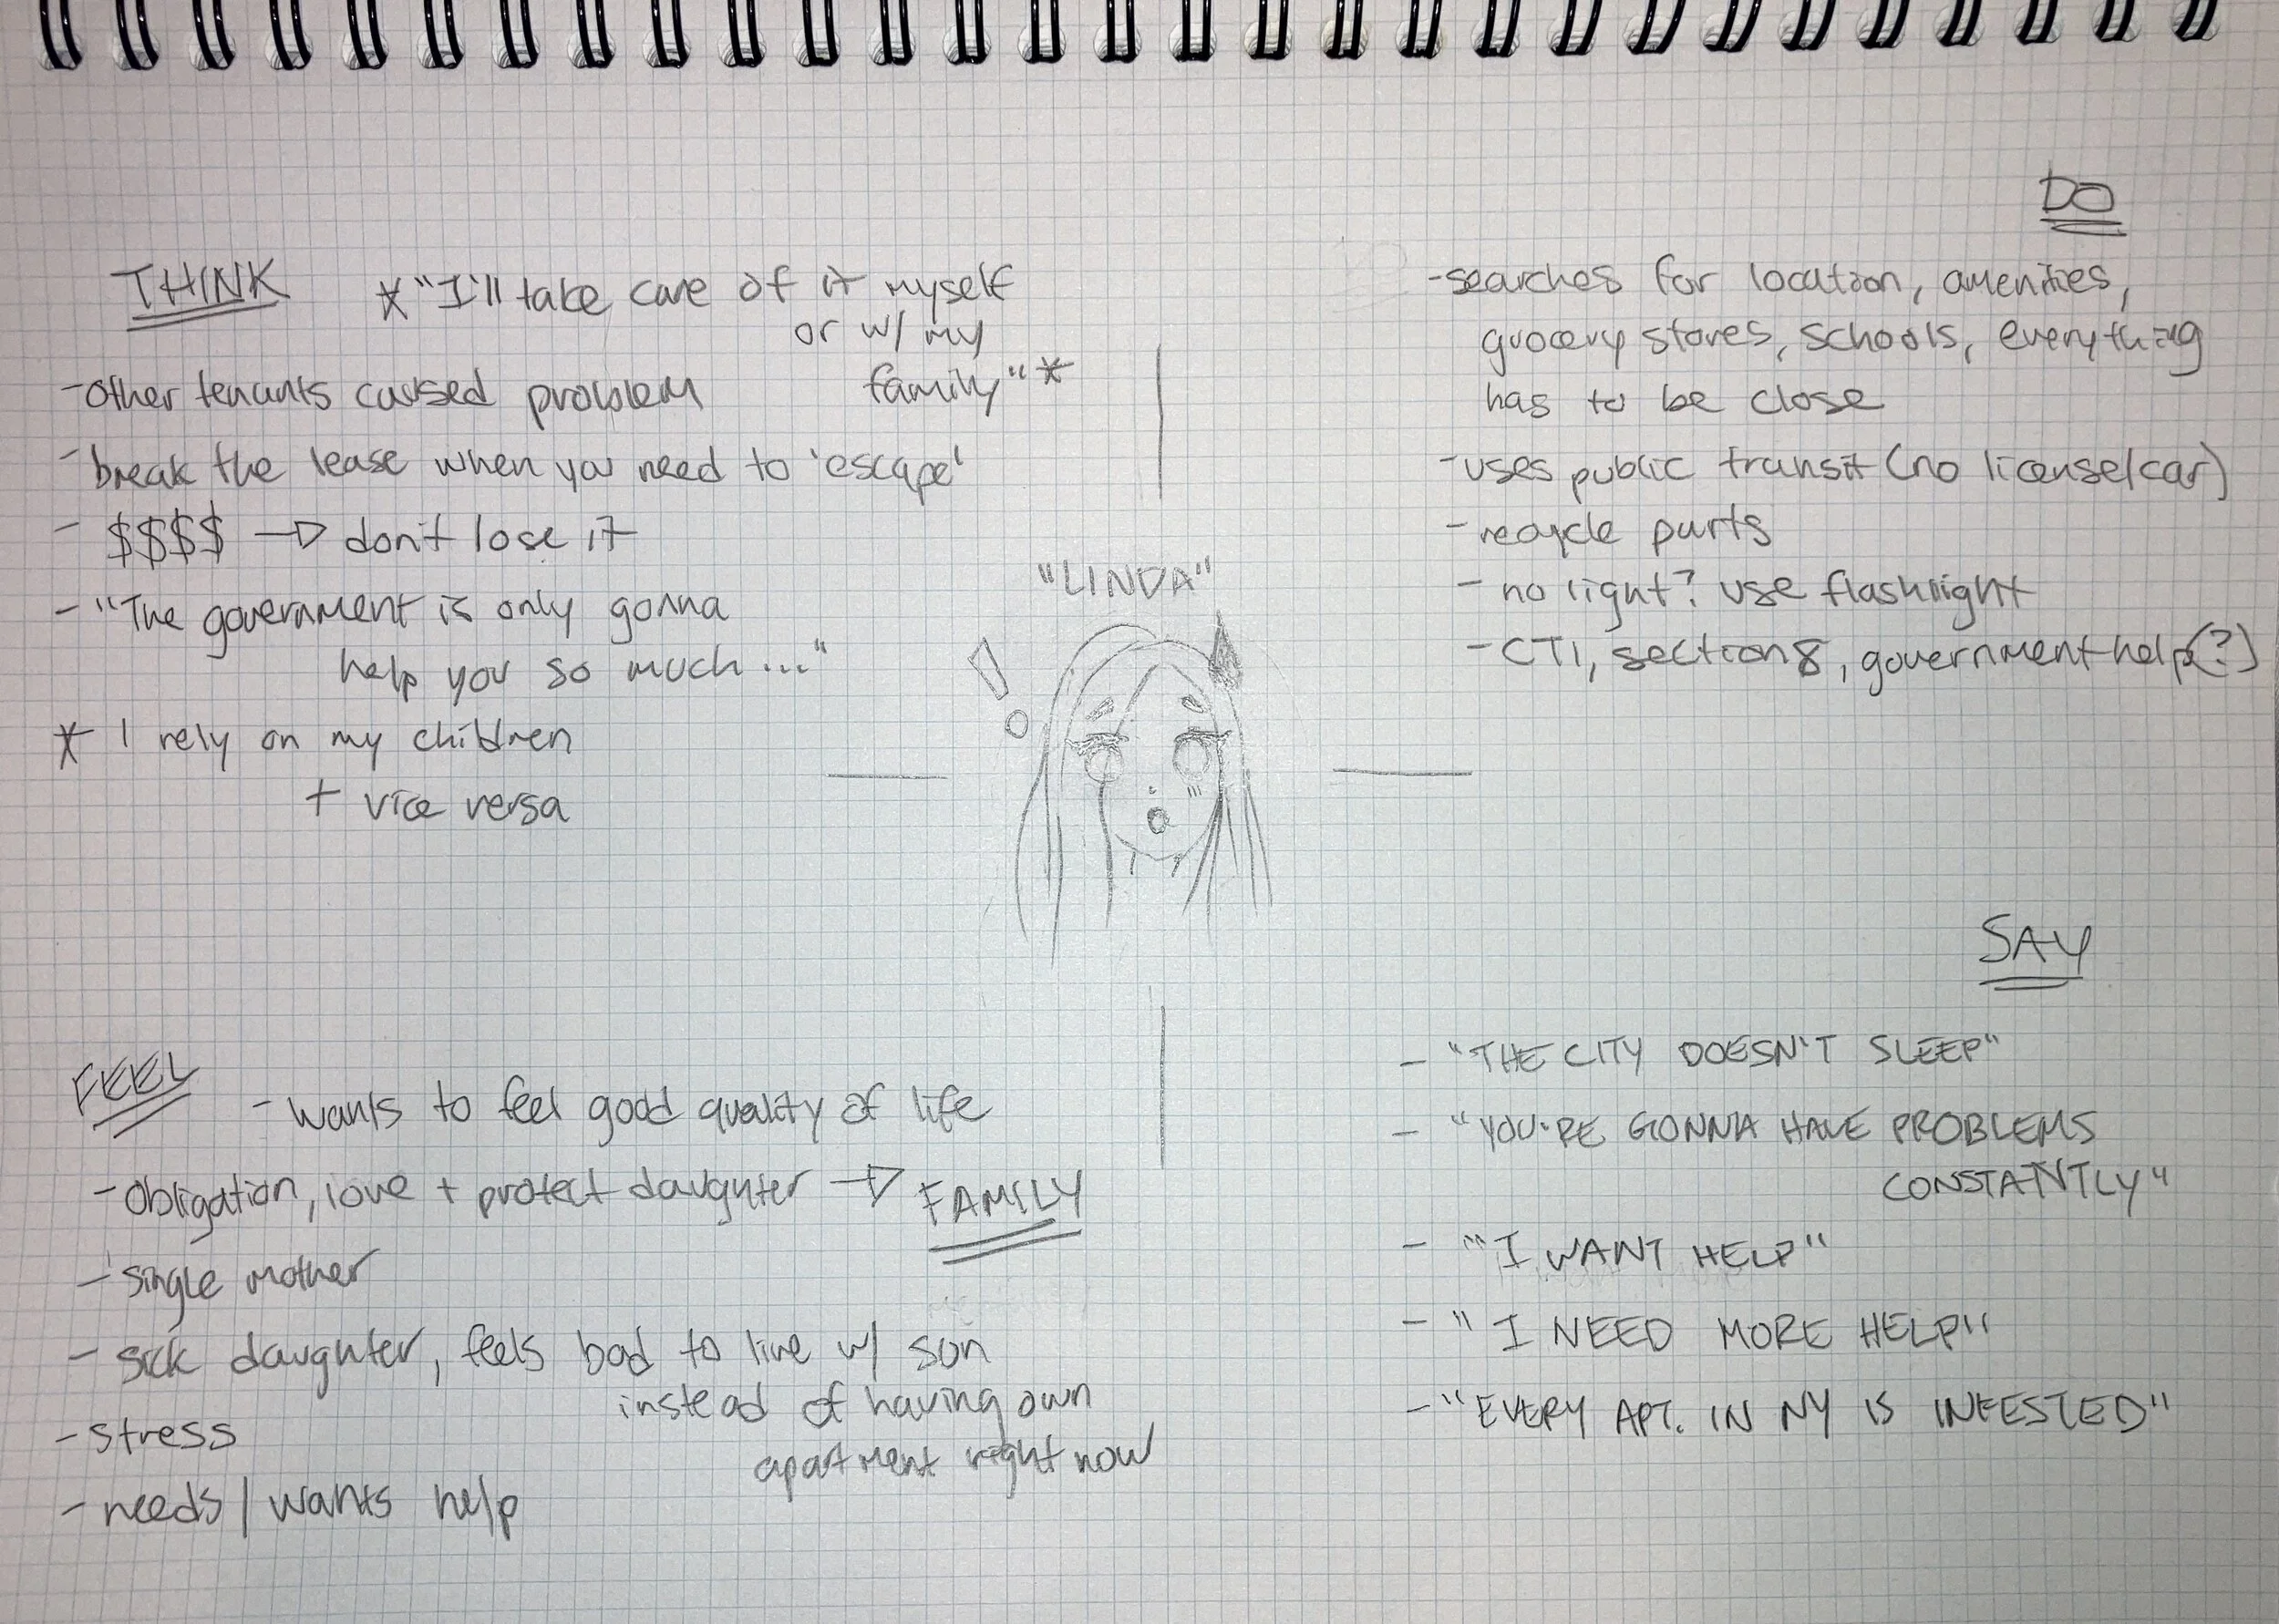 THINK
*"I'll take care of it myself
or w/ my
family"*
-other tenants caused problem
-break the lease when you need to 'escape'
- $$$$ → don't lose it
- "The government is only gonna
help you so much..."
* I rely on my children
+ vice versa
DO
-searches for location, amenities,
grocery stores, schools, everything
has to be close
-uses public transit (no license/car)
-recycle parts
- no light? use flashlight
-CTI, section 8, government help(?)
"LINDA"
!
FEEL
-wants to feel good quality of life
-obligation, love + protect daughter → FAMILY
-single mother
- sick daughter, feels bad to live w/ son
instead of having own
apartment right now
-stress
-needs/wants help
SAY
- "THE CITY DOESN'T SLEEP"
- "YOU'RE GONNA HAVE PROBLEMS
CONSTANTLY"
- "I WANT HELP"
- "I NEED MORE HELP"
-"EVERY APT. IN NY IS INFESTED"